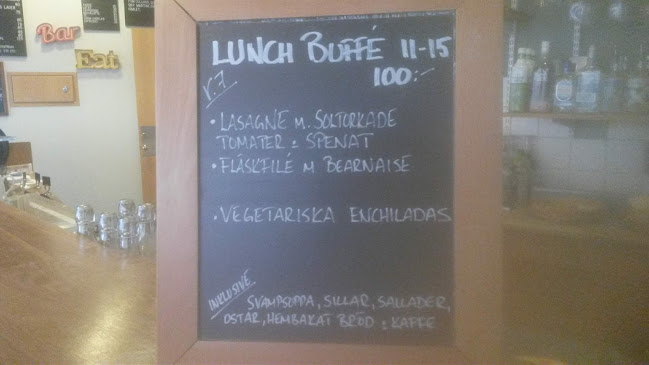 Bar
Eat
LUNCH BUFFÉ 11-15
100:-
V.7
• LASAGNE M. SOLTORKADE
TOMATER & SPENAT
• FLÄSKFILÉ M BEARNAISE
• VEGETARISKA ENCHILADAS
INKLUSIVE
SVAMPSOPPA, SILLAR, SALLADER,
OSTAR, HEMBAKAT BRÖD & KAFFE